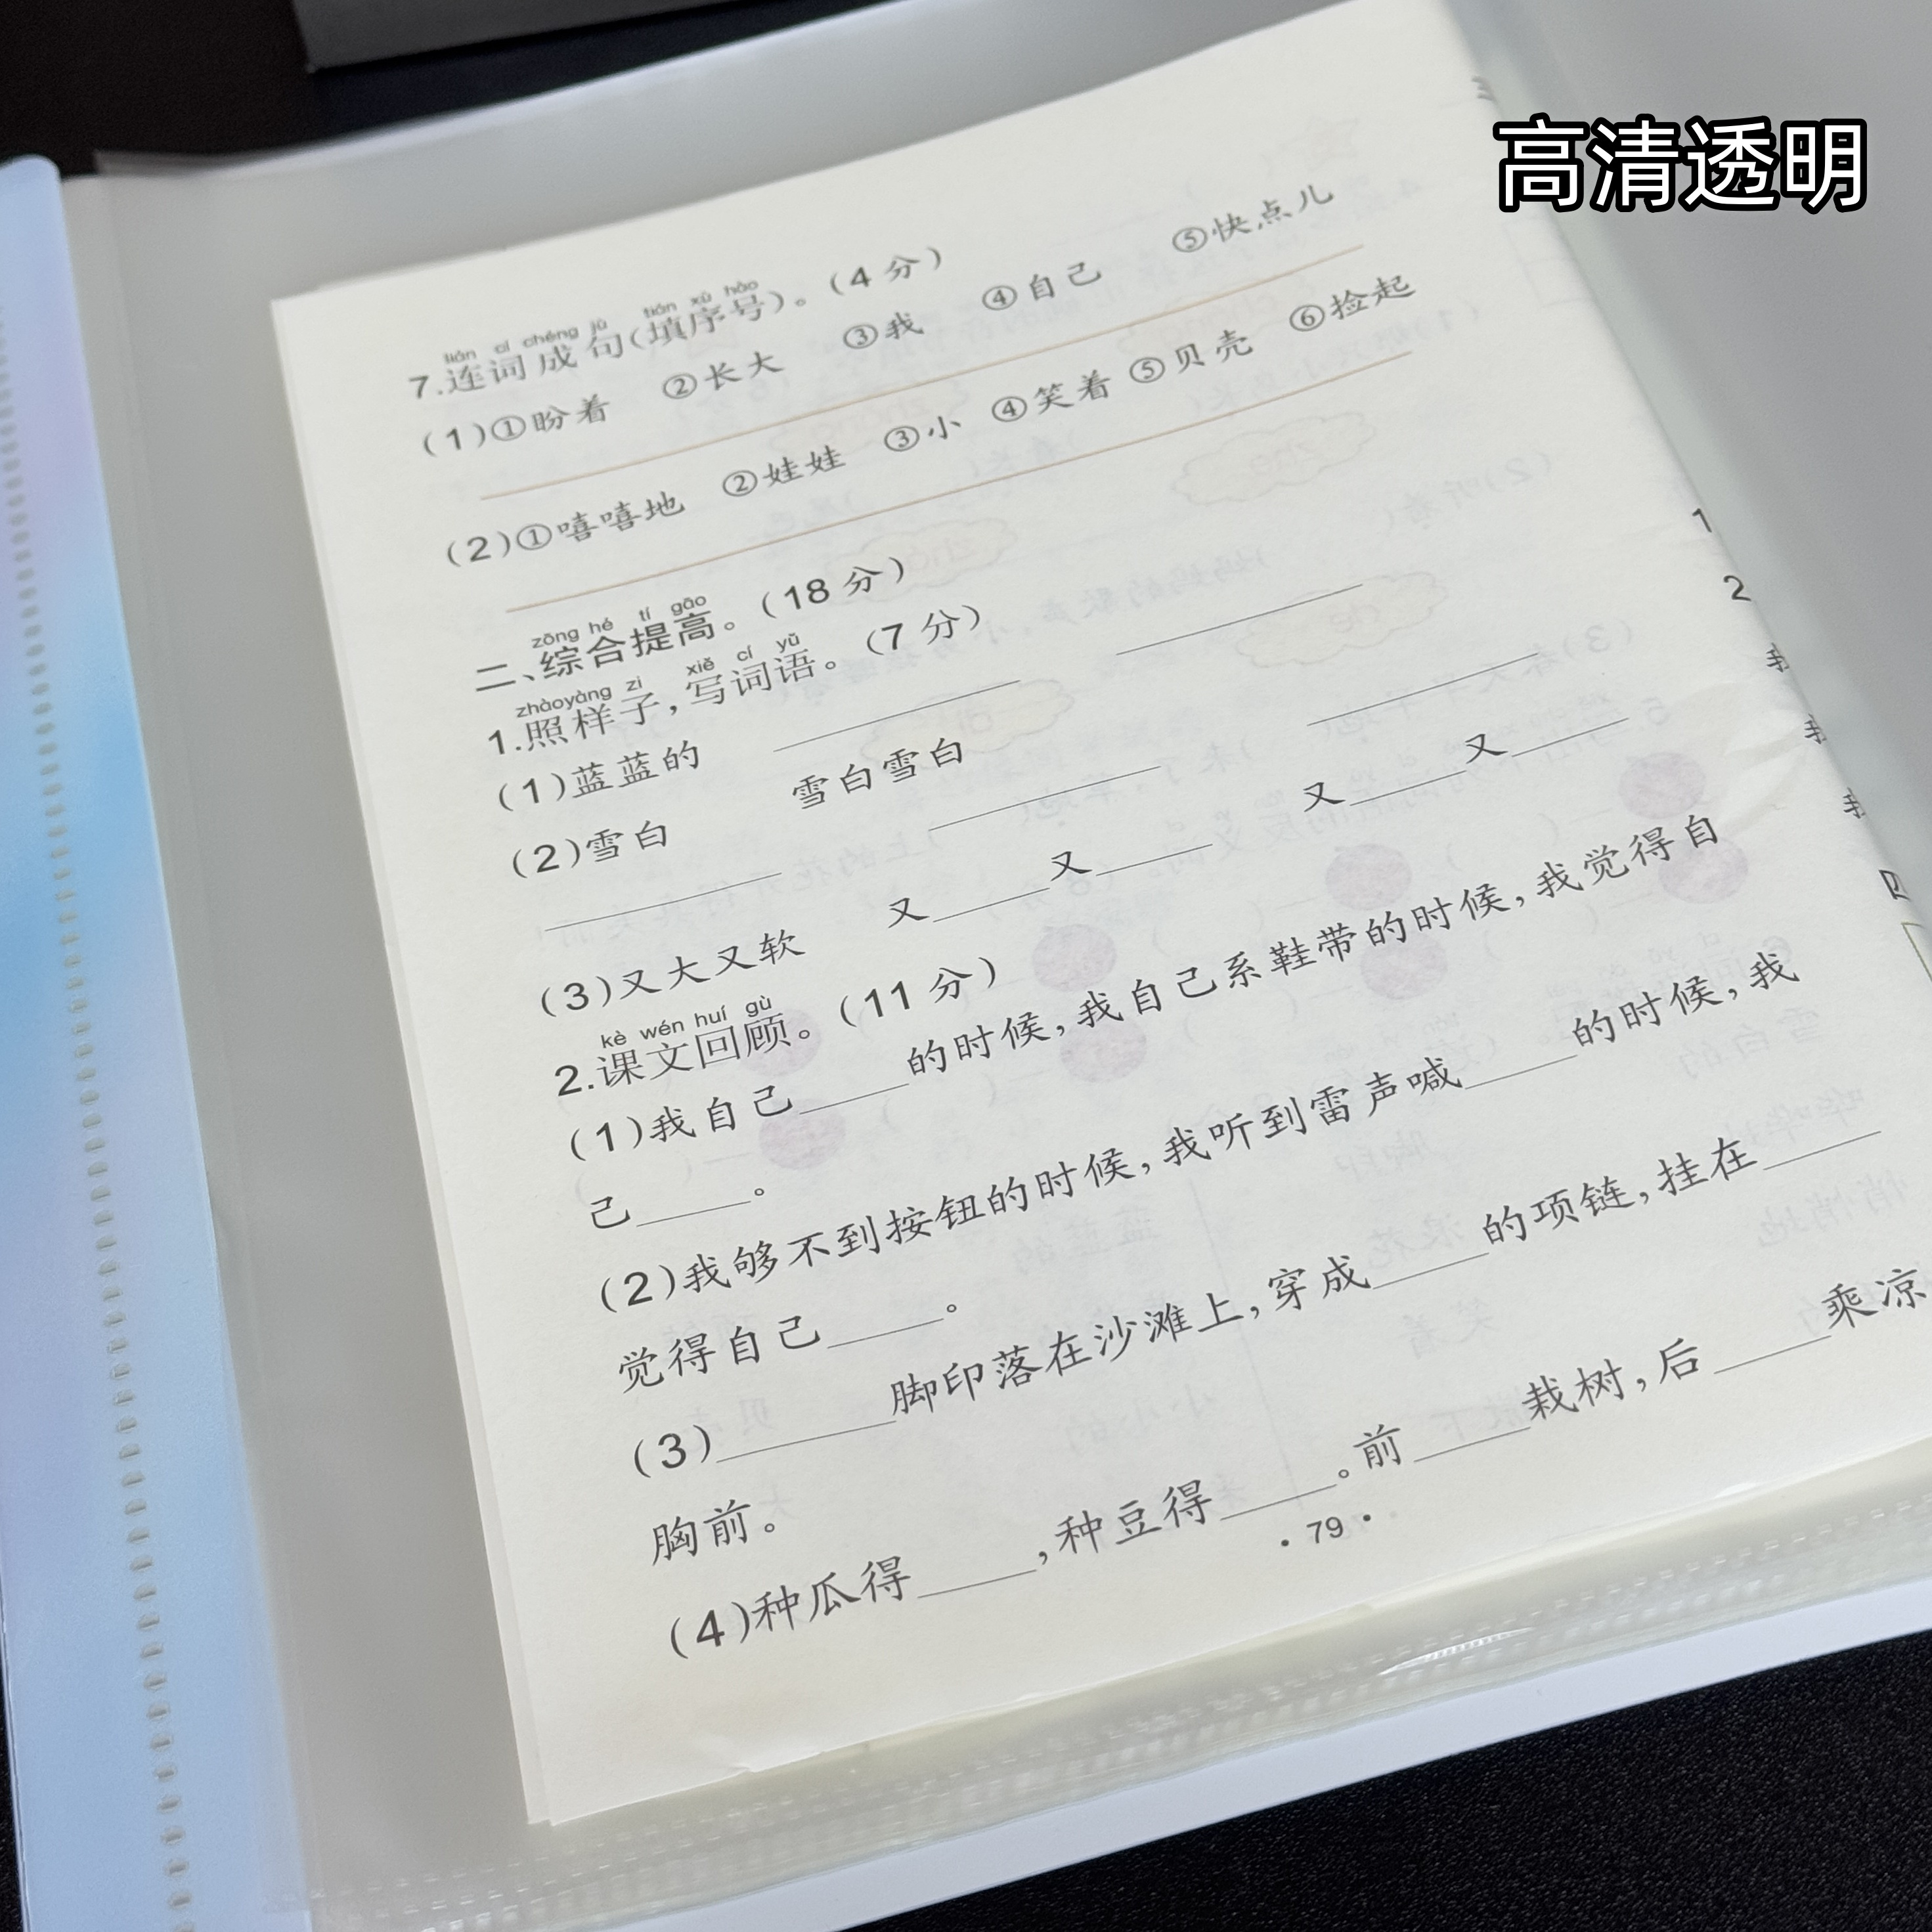 高清透明
lián cí chéng jù tián xù hào
7.连词成句(填序号)。(4分)
(1)①盼着 ②长大 ③我 ④自己 ⑤快点儿
(2)①嘻嘻地 ②娃娃 ③小 ④笑着 ⑤贝壳 ⑥捡起
zōng hé tí gāo
二、综合提高。(18分)
zhào yàng zi xiě cí yǔ
1.照样子,写词语。(7分)
(1)蓝蓝的 ______ ______
(2)雪白 雪白雪白 ______
______ ______
(3)又大又软 又____又____ 又____又____
kè wén huí gù
2.课文回顾。(11分)
(1)我自己____的时候,我自己系鞋带的时候,我觉得自
己____。
(2)我够不到按钮的时候,我听到雷声喊____的时候,我
觉得自己____。
(3)______脚印落在沙滩上,穿成____的项链,挂在____
胸前。
(4)种瓜得____,种豆得____。前____栽树,后____乘凉
·79·
1
2
我
我
我
四